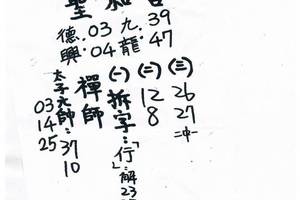 聖
德興：03 04
九龍 39 47
太子元帥：37 10
03 14 25
禪師
(一)拆字：「行」解23
(二) 12 8
(三) 26 27 二中一